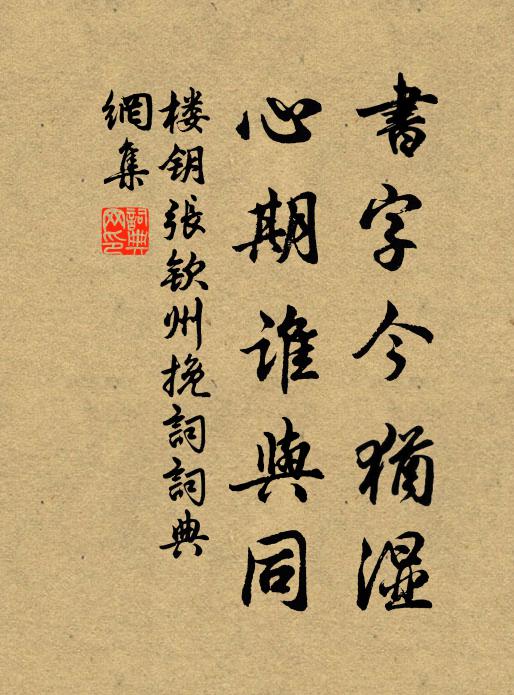 書字今猶濕
心期誰與同
楼钥張欽州挽詞詞典
網集
詞典網印